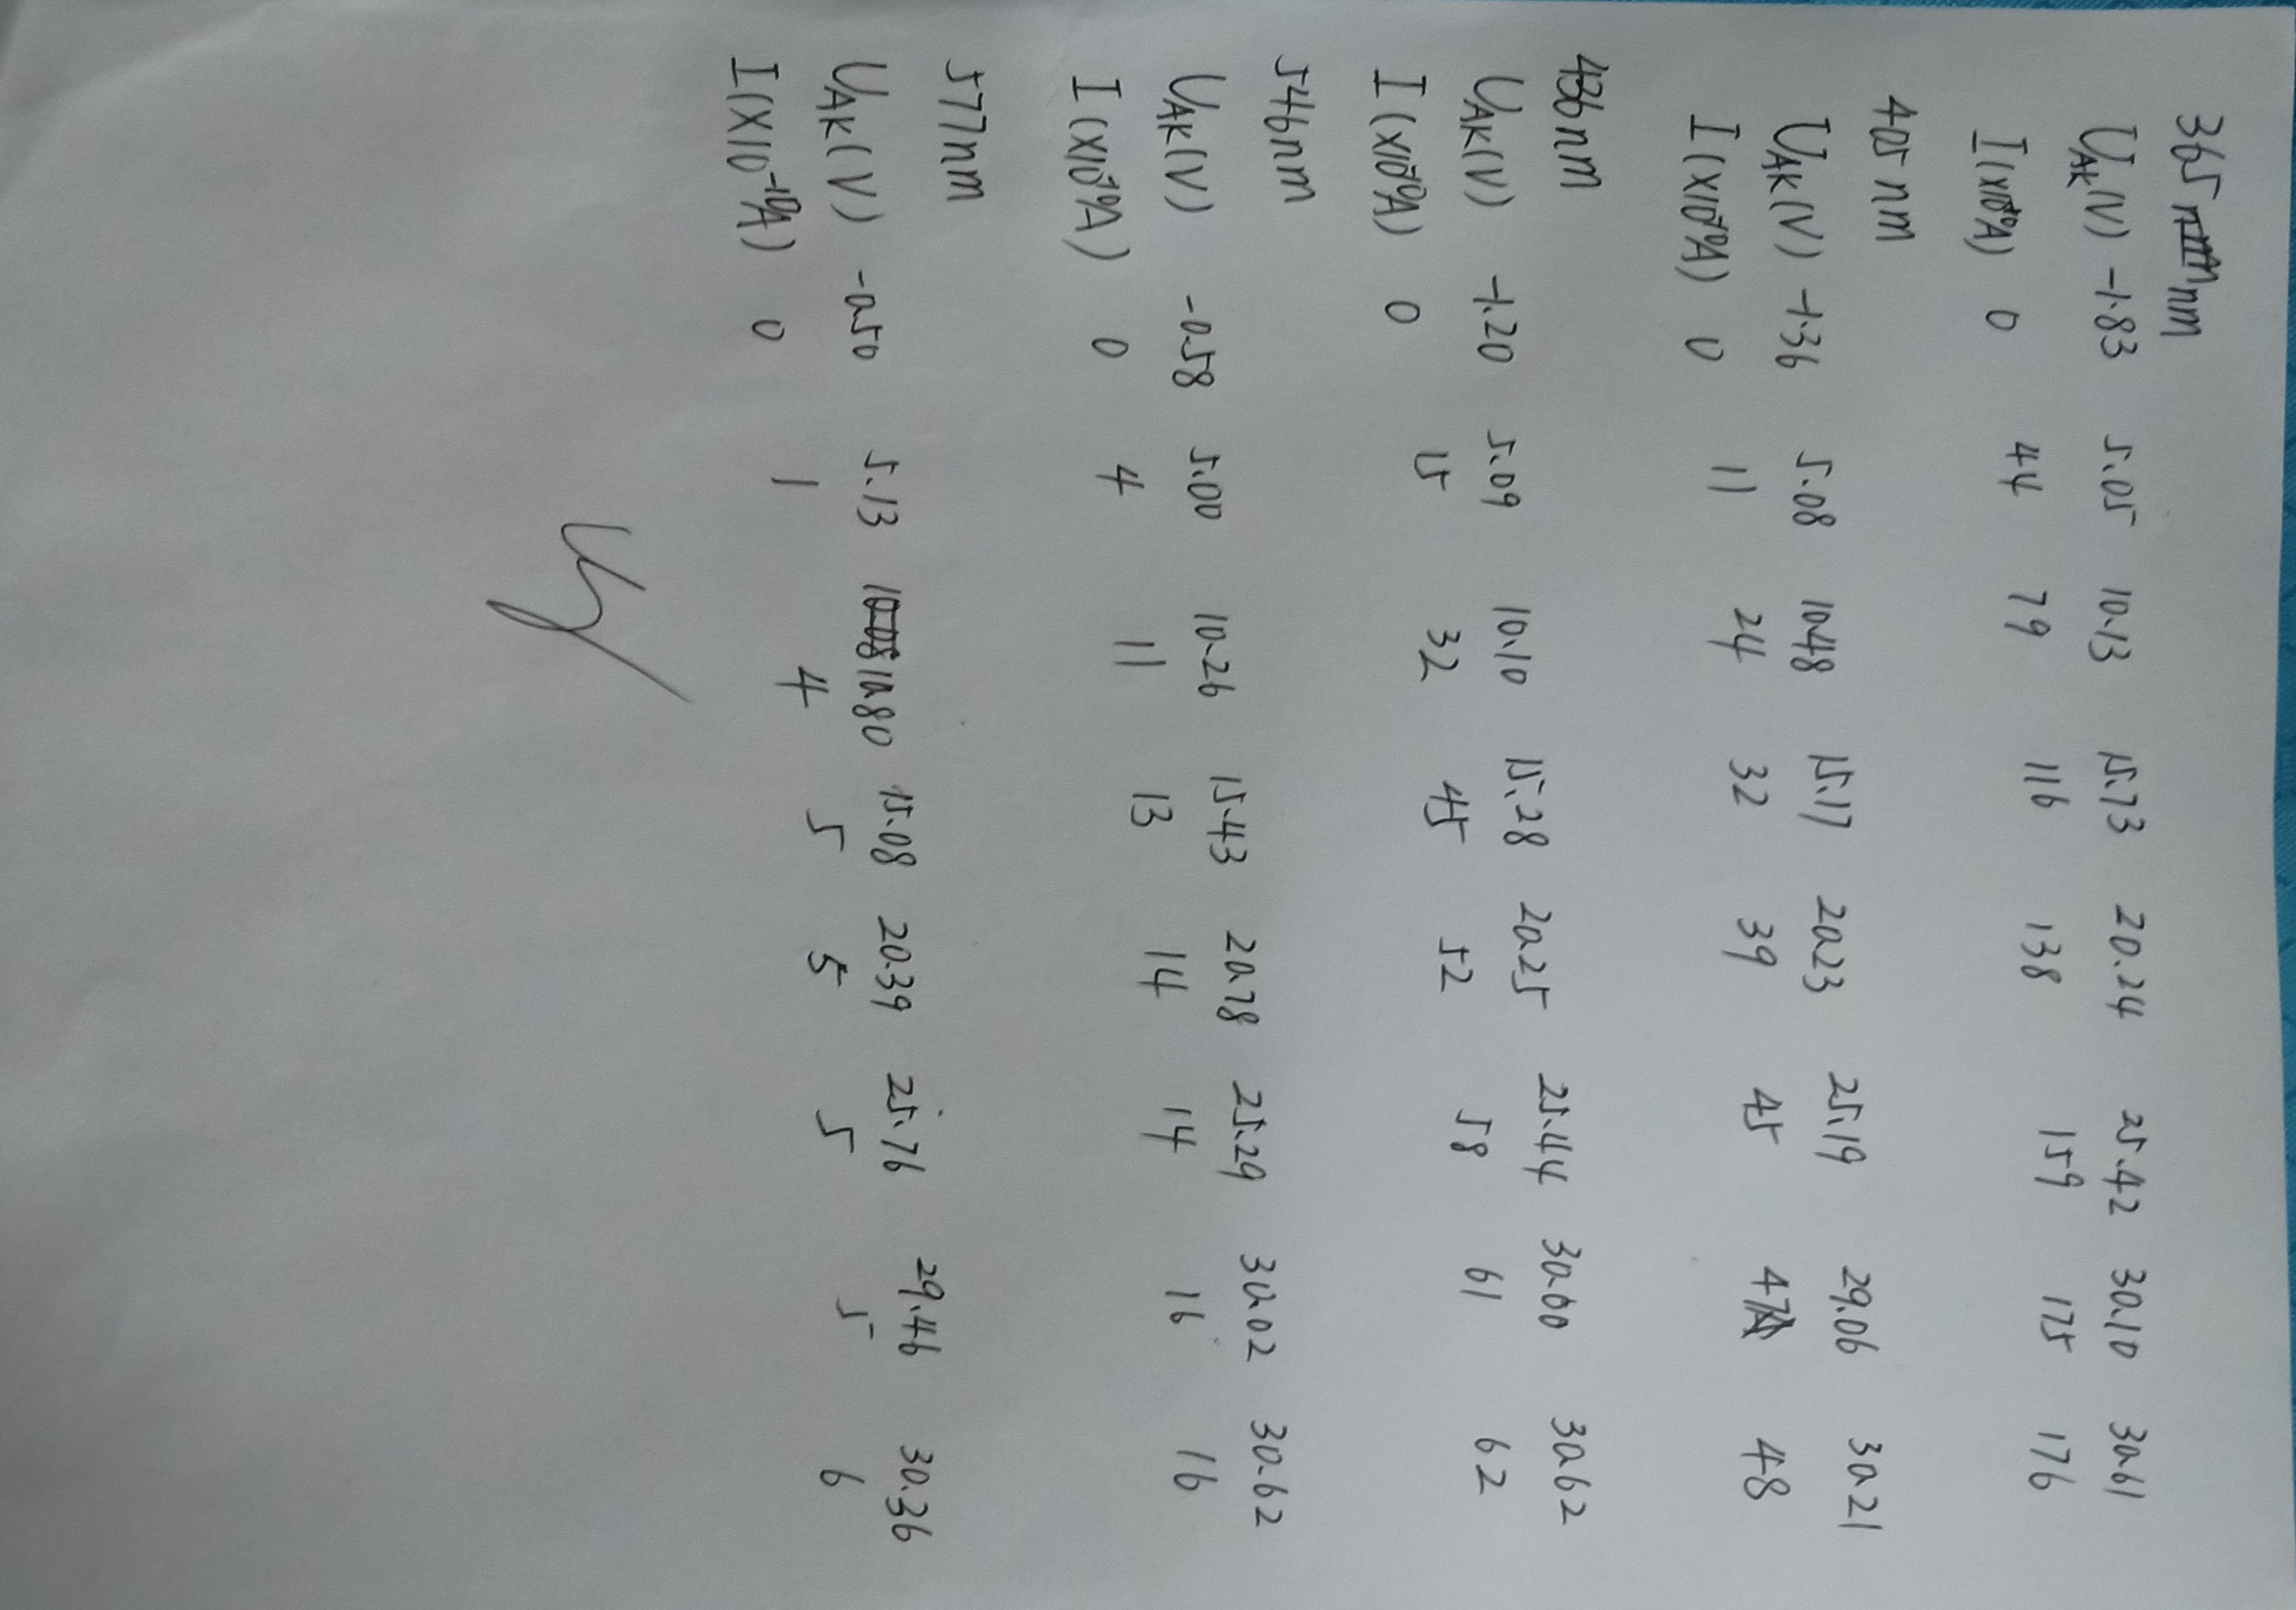 365 nm
U_AK(V) -1.83 5.05 10.13 15.73 20.24 25.42 30.10 30.61
I(×10⁻¹⁰A) 0 44 79 116 138 159 175 176
405 nm
U_AK(V) -1.36 5.08 10.48 15.17 20.23 25.19 29.06 30.21
I(×10⁻¹⁰A) 0 11 24 32 39 45 47 48
436nm
U_AK(V) -1.20 5.09 10.10 15.28 20.25 25.44 30.00 30.62
I(×10⁻¹⁰A) 0 15 32 45 52 58 61 62
546nm
U_AK(V) -0.58 5.00 10.26 15.43 20.78 25.29 30.02 30.62
I(×10⁻¹⁰A) 0 4 11 13 14 14 16 16
577nm
U_AK(V) -0.50 5.13 10.80 15.08 20.39 25.76 29.46 30.36
I(×10⁻¹⁰A) 0 1 4 5 5 5 5 6